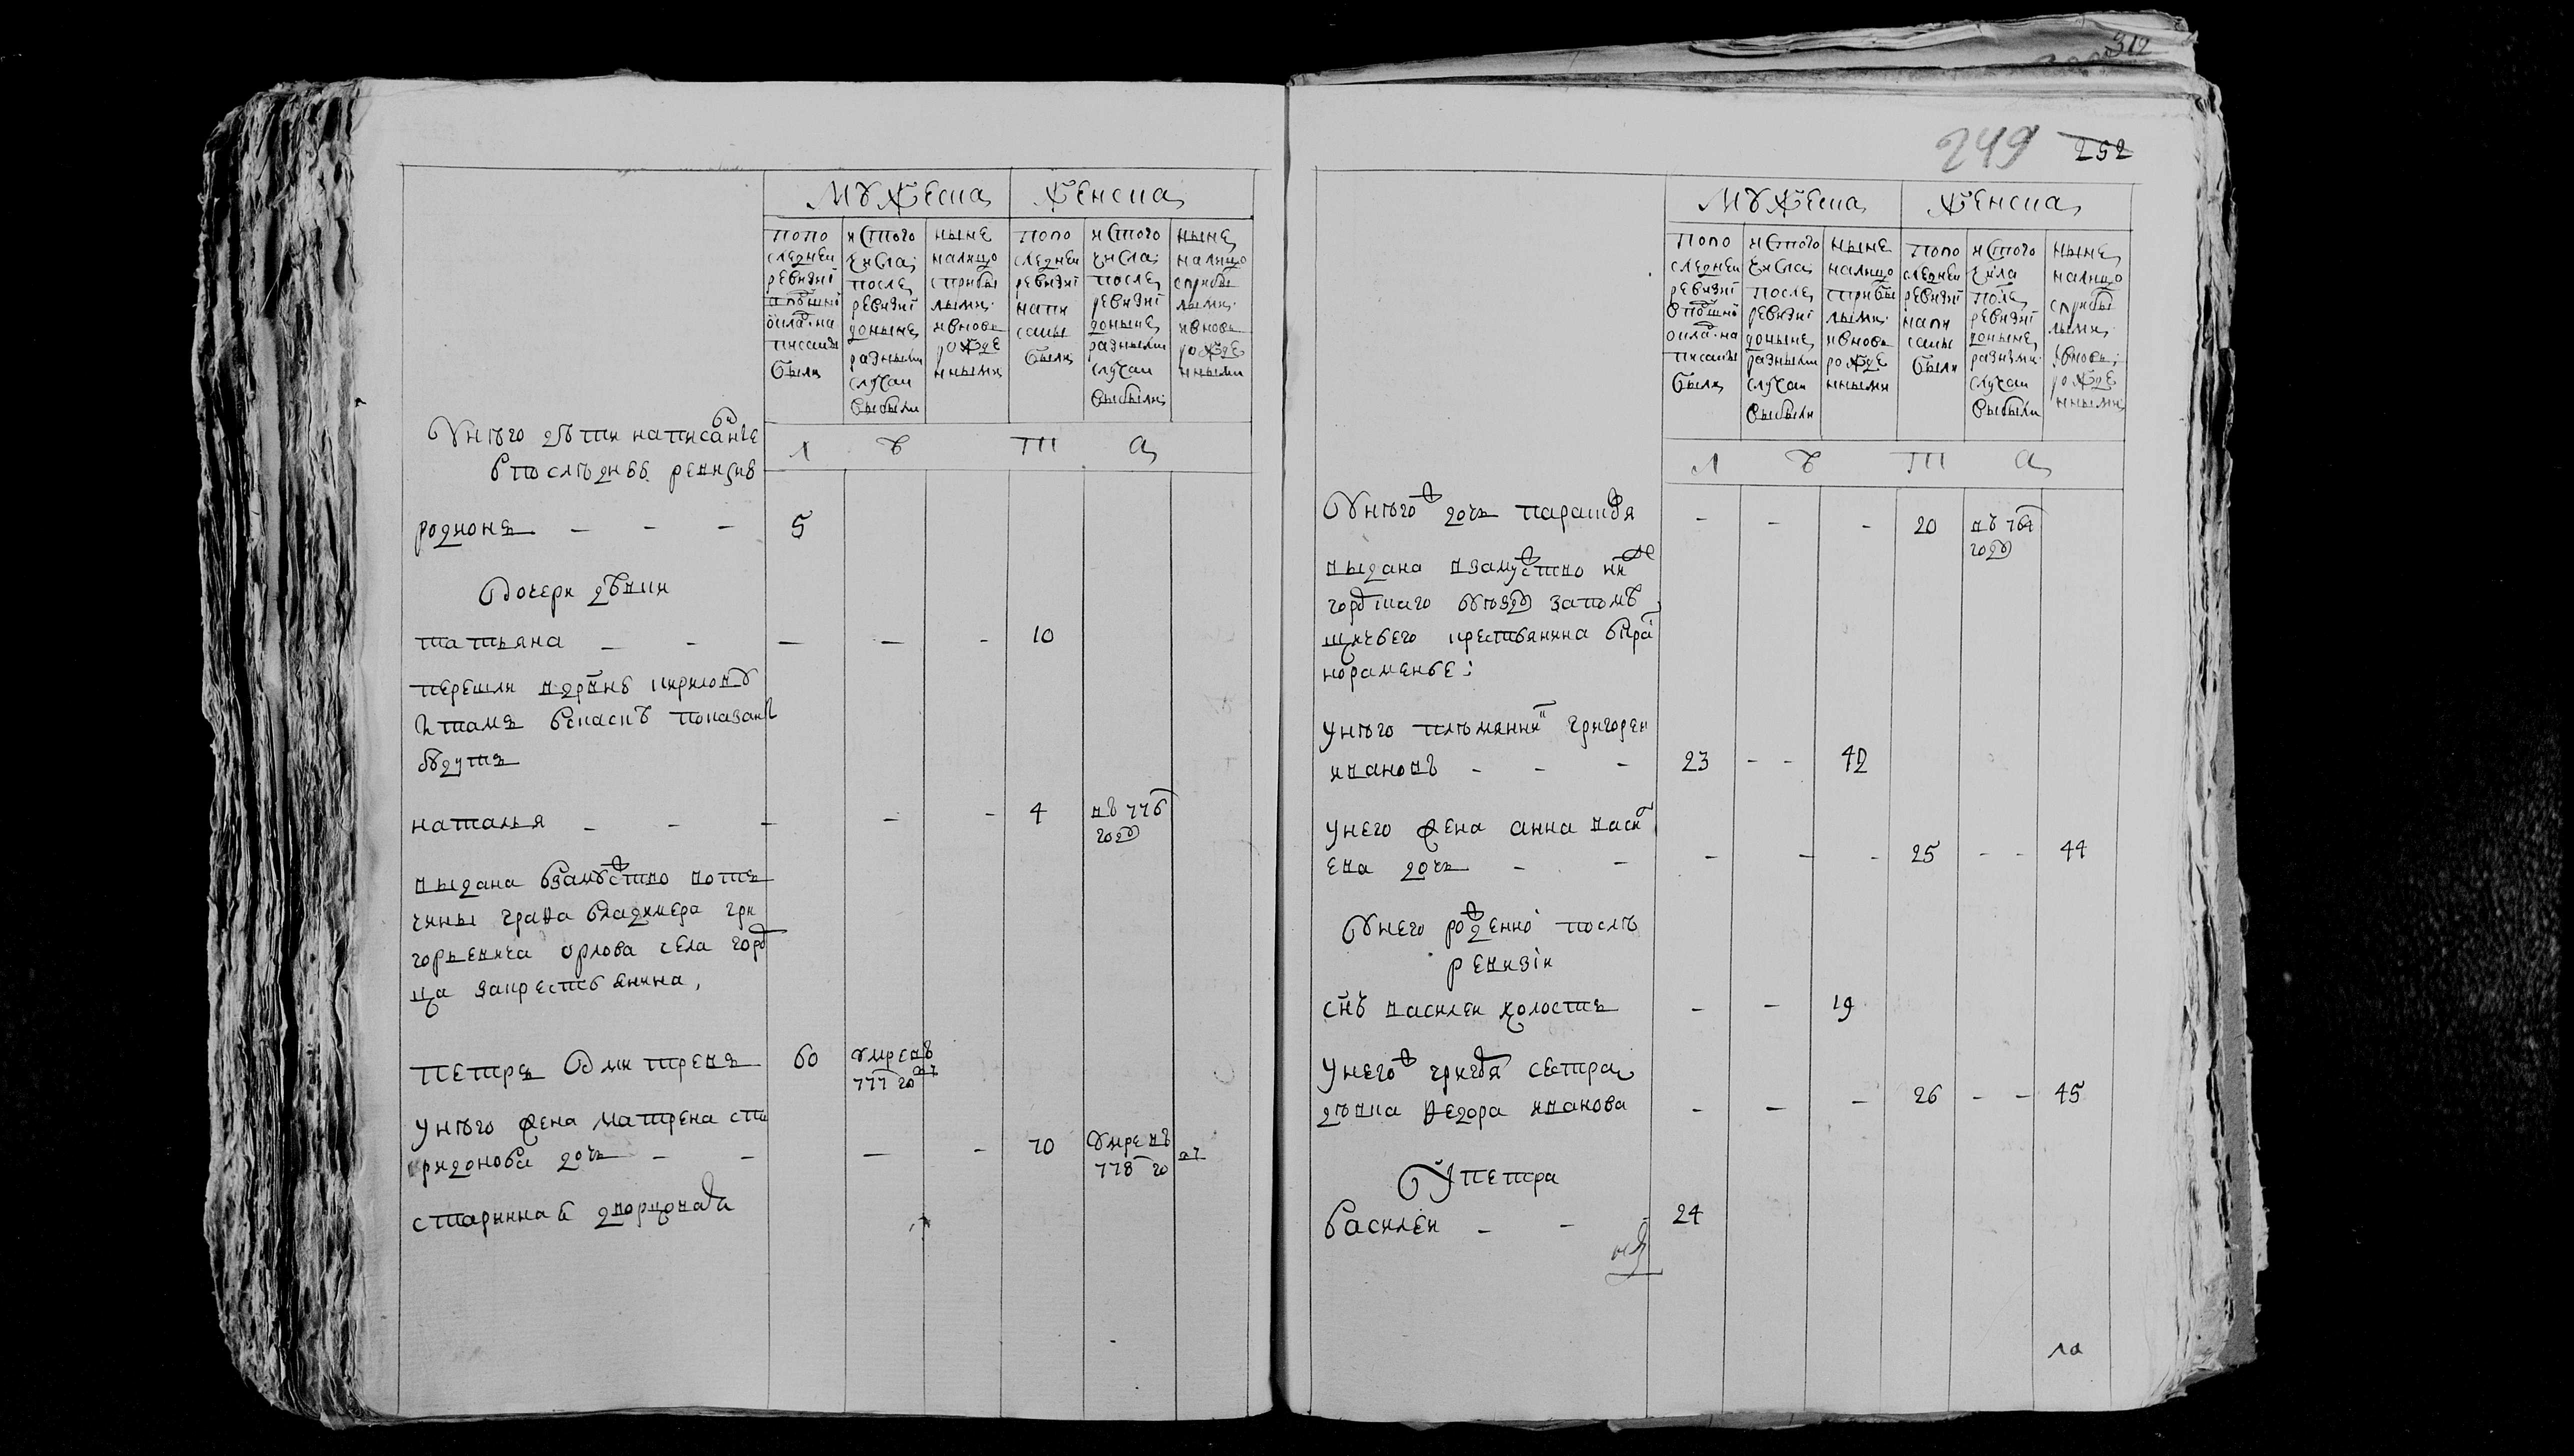 312
мужеска
женска
попо
следнеи
ревизиї
в подушнои
окла на
писаны
были
и стого
числа
после
ревизиї
доныне
разными
случаи
выбыли
ныне
налицо
сприбы
лыми
ивновь
рожде
нными
попо
следнеи
ревизиї
напи
саны
были
и стого
числа
после
ревизиї
доныне
разными
случаи
выбыли
ныне
налицо
сприбы
лыми
ивновь
рожде
нными
л ѣ т а
У нѣго дѣти написанъе
впослѣднеѣ ревизиѣ
родионъ - - - 5
Дочери дѣвки
татьяна - - - - - 10
перешли
і тамъ вскаскѣ показаны
будутъ
наталья - - - - - 4 въ 776
году
выдана взамужство вотъ
чины графа владимера гри
горьевича орлова села горо
ца закрестьянина,
петръ Дмитревъ 60 умре въ
777 году
У нѣго жена матрена спи
ридонова дочь - - - - 70 умре въ
778 году
стариннаѣ дворцовая
249 252
мужеска
женска
попо
следнеи
ревизиї
в подушнои
окла на
писаны
были
и стого
числа
после
ревизиї
доныне
разными
случаи
выбыли
ныне
налицо
сприбы
лыми
ивновь
рожде
нными
попо
следнеи
ревизиї
напи
саны
были
и стого
числа
после
ревизиї
доныне
разными
случаи
выбыли
ныне
налицо
сприбы
лыми
ивновь
рожде
нными
л ѣ т а
У нѣго ж дочь параскевья - - - 20 въ 764
году
выдана взамужство ниже
городскаго уѣзду запомѣ
щичьего крестьянина
нораменье
У нѣго племянникъ григореи
ивановъ - - - 23 - - 42
У него жена анна васил
ева дочь - - - - - 25 - - 44
У него рожденной послѣ
ревизіи
снъ василеи холостъ - - 19
У него ж григорья сестра
дѣвка федора иванова - - - 26 - - 45
У петра
василеи - - - 24